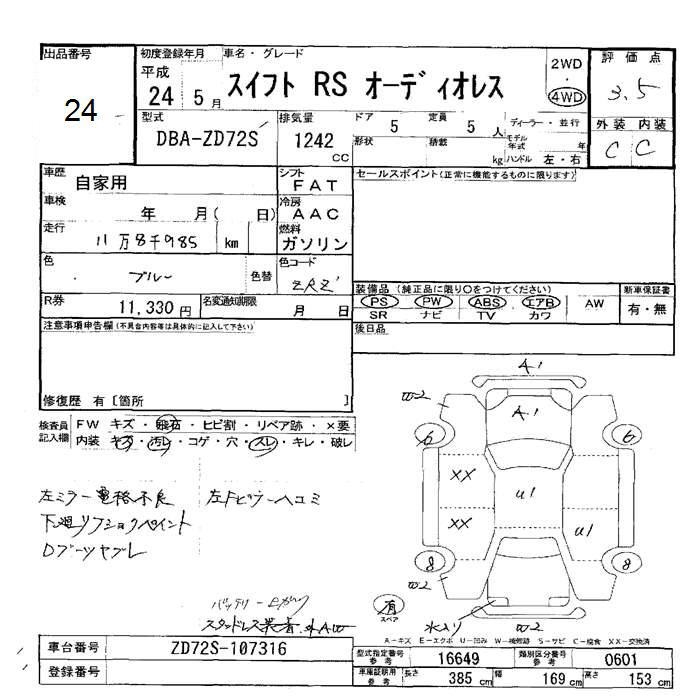 出品番号 初度登録年月 車名・グレード 評価点
24 平成 24 5月 スイフト RS オーディオレス 2WD・4WD 3.5
型式 排気量 ドア 定員 ディーラー・並行 外装 内装
DBA-ZD72S 1242 CC 5 5人 モデル年式 年 C C
形状 積載 kg ハンドル 左・右
車歴 自家用 シフト FAT セールスポイント(正常に機能するものに限ります)
車検 年 月( 日) 冷房 AAC
走行 11万8千985 km 燃料 ガソリン
色 ブルー 色替 色コード
装備品(純正品に限り○をつけてください) 新車保証書
R券 11,330円 名変通知期限 月 日 PS PW ABS エアB AW 有・無
SR ナビ TV カワ
注意事項申告欄(不具合内容等は具体的に記入して下さい) 後日品
修復歴 有[箇所 ]
検査員記入欄 FW キズ・飛石・ヒビ割・リペア跡・×要
内装 キズ・汚レ・コゲ・穴・スレ・キレ・破レ
A1
W2
A1
6 6
XX
U1
XX U1
8 8
W2
有 スペア 水入リ W2
左ミラー電格不良 左Fピラーヘコミ
下廻リフショックペイント
Dブーツヤブレ
バッテリー
スタッドレス装着
A-キズ E-エクボ U-凹み W-補修跡 S-サビ C-腐食 XX-交換済
車台番号 ZD72S-107316 型式指定番号 参考 16649 類別区分番号 参考 0601
登録番号 車庫証明用 参考 長さ 385 cm 幅 169 cm 高さ 153 cm